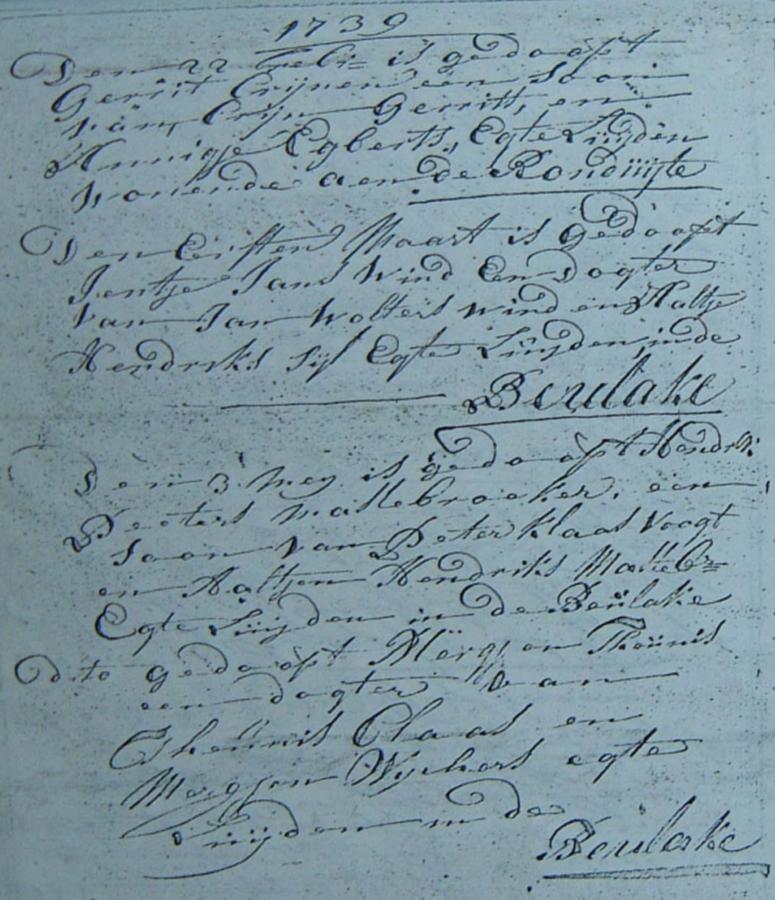 1739
Den 22 Febr= is gedooft
Gerrit Crijnen een Soon
van Crijn Gerrits, en
Annigje Egberts, Egte Luijden
wonende aen de Ronduijte
Den Eersten Maart is Gedooft
Jentje Jans Wind Een Dogter
van Jan Wolters wind en Aaltje
Hendriks Sijl Egte Luijden, in de
Beulake
Den 3 Mey is gedooft Hendrik
Peeters Mastebroeker, een
Soon van Peter Klaas Voogt
en Aaltjen Hendriks Masteb=
Egte Luijden in de Beulake
dito gedooft Mergjen Theunis
een dogter van
Theunis Claas en
Mergjen Wychers egte
Luijden in de
Beulake